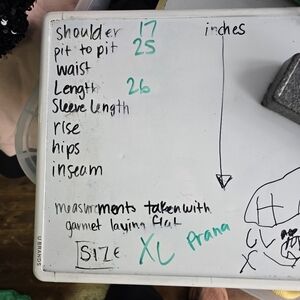 shoulder 17 inches
pit to pit 25
waist
Length 26
Sleeve Length
rise
hips
inseam
measurements taken with
garmet laying flat
SIZE XL Prana
U BRANDS